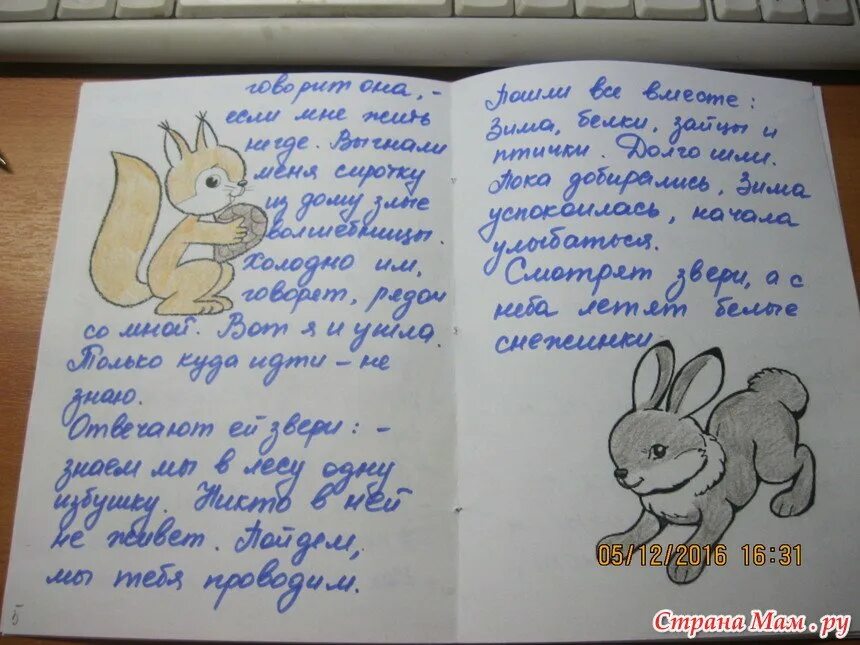 говорит она, -
если мне жить
негде. Выгнали
меня сиротку
из дому злые
волшебницы.
Холодно им,
говорят, рядом
со мной. Вот я и ушла.
Только куда идти - не
знаю.
Отвечают ей звери: -
знаем мы в лесу одну
избушку. Никто в ней
не живет. Пойдем,
мы тебя проводим.
5
Пошли все вместе:
Зима, белки, зайцы и
птички. Долго шли.
Пока добирались, Зима
успокоилась, начала
улыбаться.
Смотрят звери, а с
неба летят белые
снежинки.
05/12/2016 16:31
Страна Мам.ру